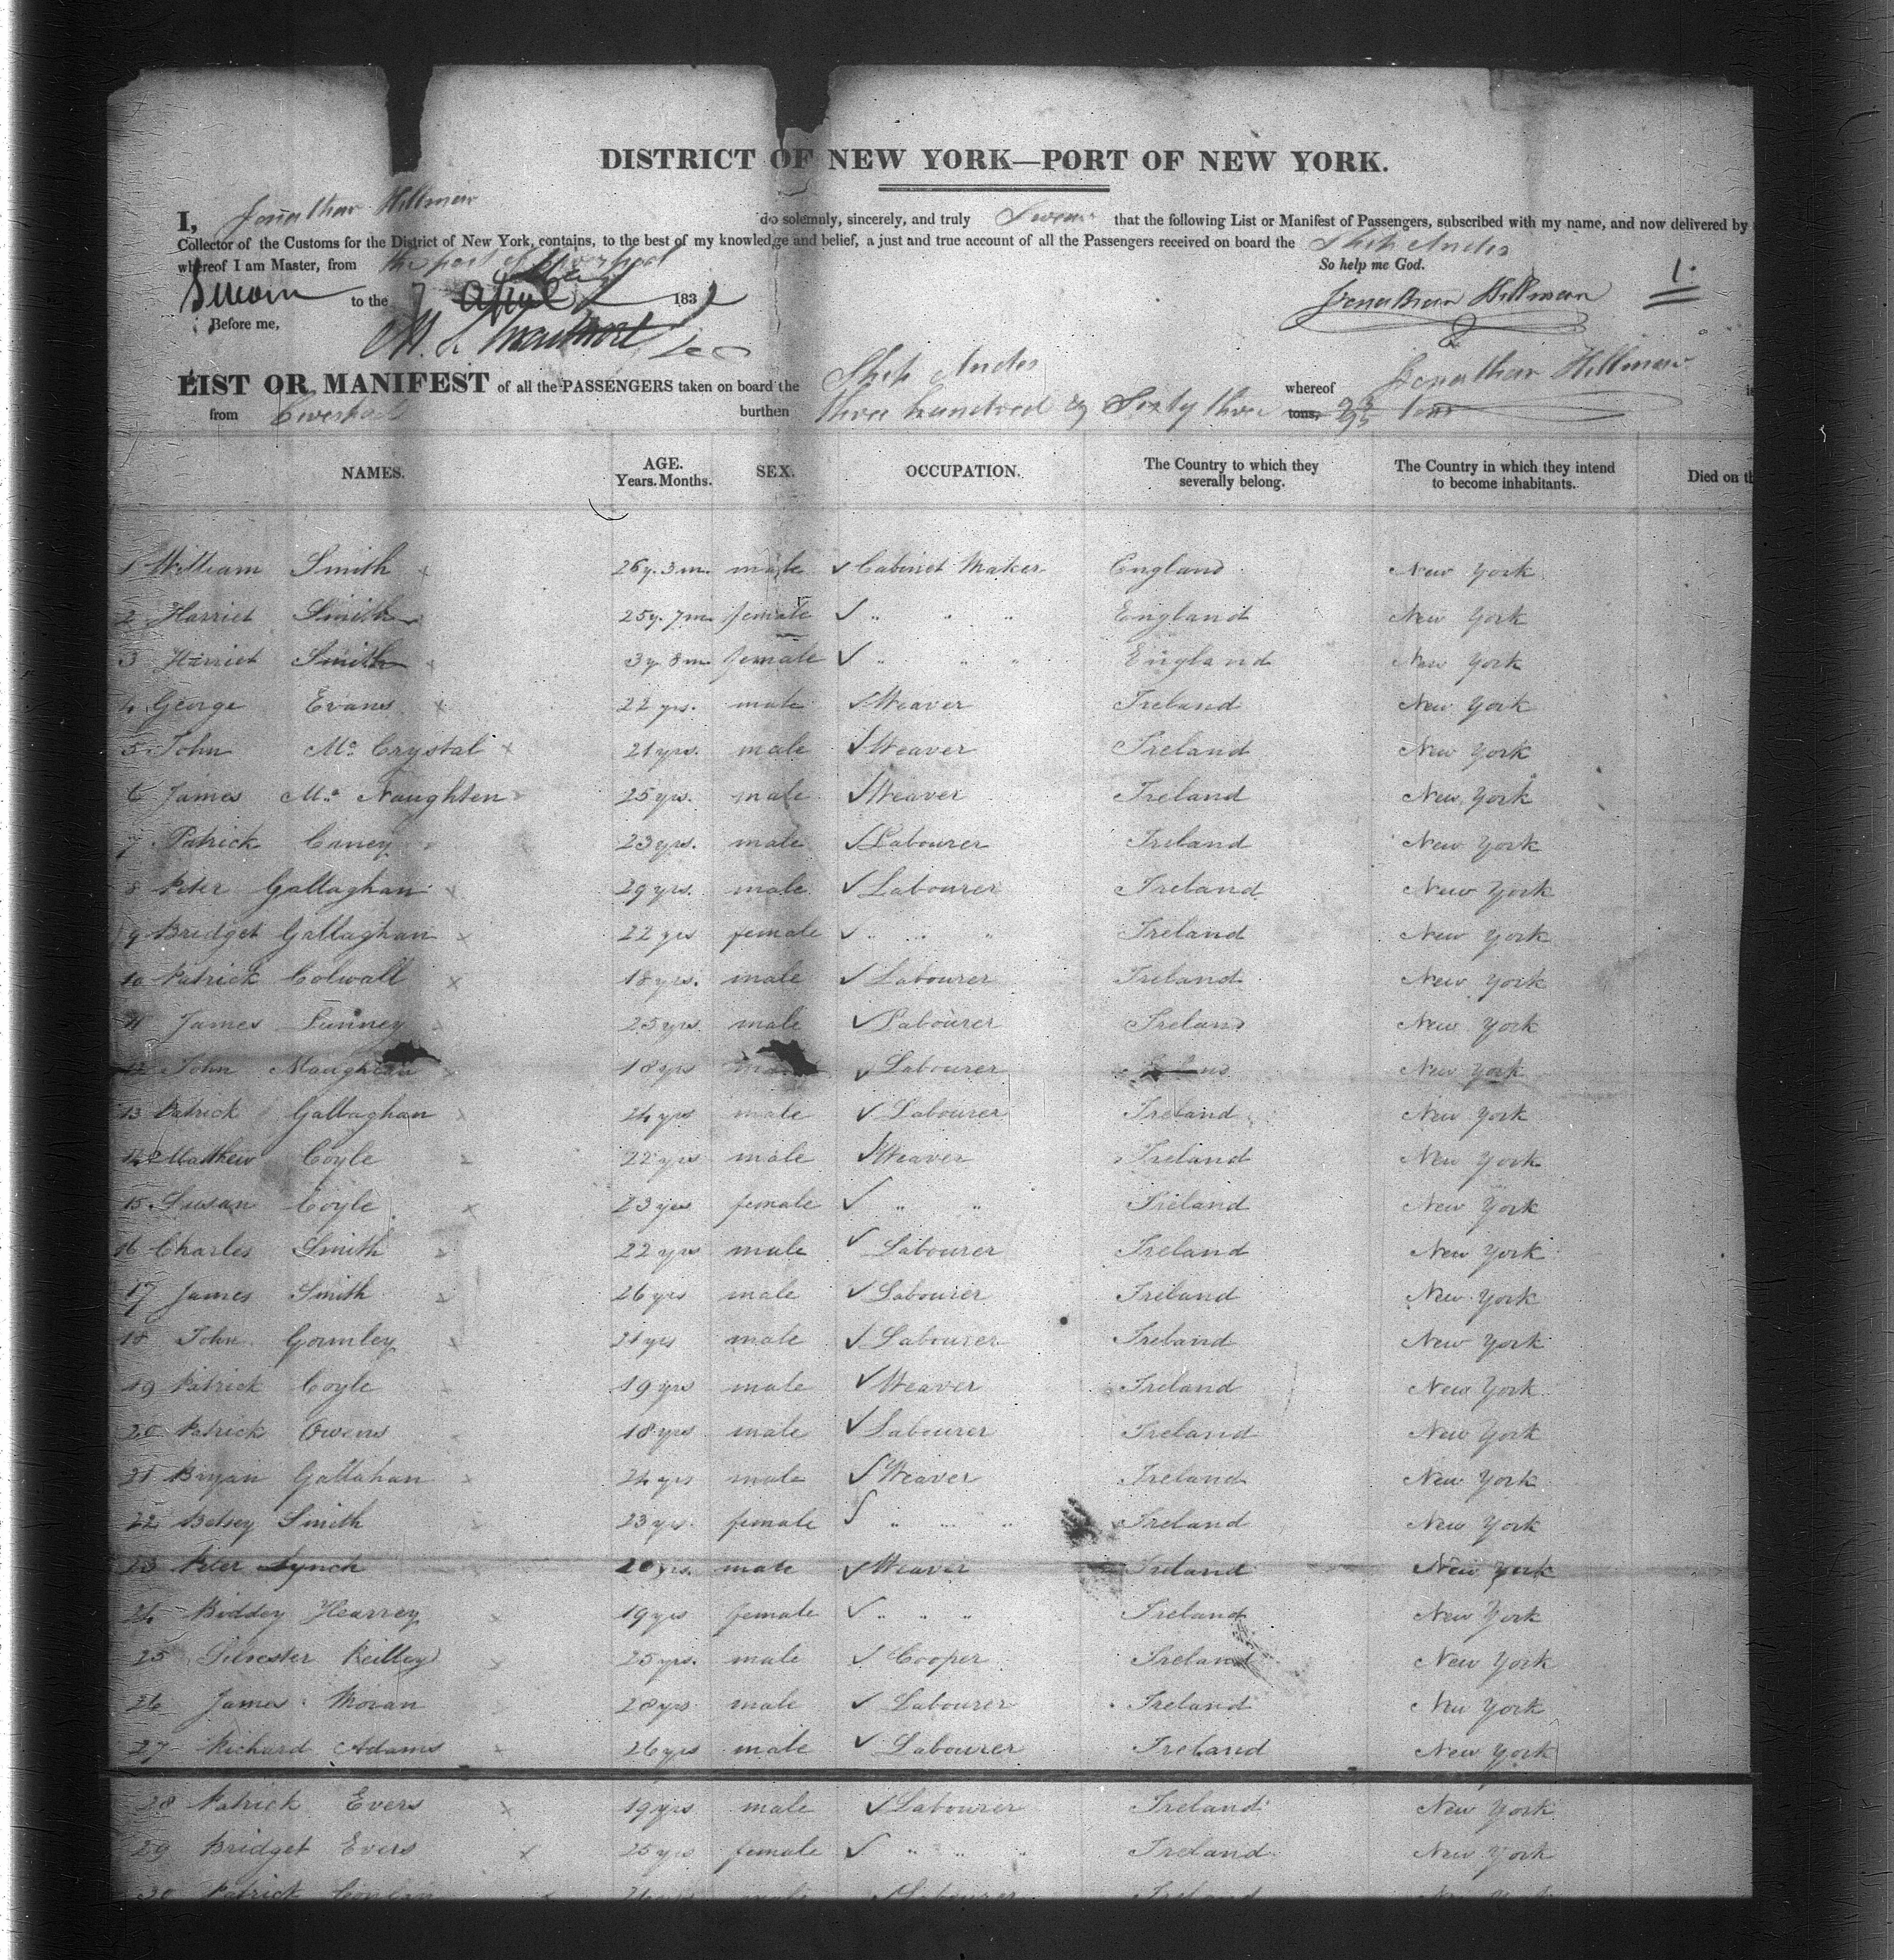 DISTRICT OF NEW YORK—PORT OF NEW YORK.
I, Jonathan Hillman do solemnly, sincerely, and truly Swear that the following List or Manifest of Passengers, subscribed with my name, and now delivered by
Collector of the Customs for the District of New York, contains, to the best of my knowledge and belief, a just and true account of all the Passengers received on board the Ship Andes
whereof I am Master, from the port of Liverpool So help me God.
Sworn to the 7 April 183 Jonathan Hillman 1.
Before me,
LIST OR MANIFEST of all the PASSENGERS taken on board the Ship Andes whereof Jonathan Hillman
from Liverpool burthen three hundred & Sixty three tons, tons
NAMES. AGE. SEX. OCCUPATION. The Country to which they The Country in which they intend Died on th
Years. Months. severally belong. to become inhabitants.
1 William Smith 26y. 3m. male Cabinet Maker England New York
2 Harriet Smith 25y. 7m. female " " " England New York
3 Harriet Smith 3y 8m. female " " " England New York
4 George Evans 22 yrs. male Weaver Ireland New York
5 John Mc Crystal 21 yrs. male Weaver Ireland New York
6 James Mc Naughten 25 yrs. male Weaver Ireland New York
7 Patrick 23 yrs. male Labourer Ireland New York
8 Peter Gallaghan 29 yrs. male Labourer Ireland New York
9 Bridget Gallaghan 22 yrs female " " " Ireland New York
10 Patrick Colwall 18 yrs. male Labourer Ireland New York
11 James 25 yrs. male Labourer Ireland New York
12 John 18 yrs Labourer New York
13 Patrick Gallaghan 24 yrs male Labourer Ireland New York
14 Mathew Coyle 22 yrs male Weaver Ireland New York
15 Susan Coyle 23 yrs female " " Ireland New York
16 Charles Smith 22 yrs male Labourer Ireland New York
17 James Smith 26 yrs male Labourer Ireland New York
18 John Gormley 21 yrs male Labourer Ireland New York
19 Patrick Coyle 19 yrs male Weaver Ireland New York
20 Patrick Owens 18 yrs male Labourer Ireland New York
21 Bryan Gallahan 24 yrs male Weaver Ireland New York
22 Betsey Smith 23 yrs. female " " " Ireland New York
23 Peter Lynch 20 yrs. male Weaver Ireland New York
24 Biddey Hearrey 19 yrs female " " " Ireland New York
25 Silvester Reilley 25 yrs. male Cooper Ireland New York
26 James Moran 28 yrs male Labourer Ireland New York
27 Richard Adams 26 yrs male Labourer Ireland New York
28 Patrick Evers 19 yrs male Labourer Ireland New York
29 Bridget Evers 25 yrs female " " " Ireland New York
30 Patrick male Labourer Ireland New York